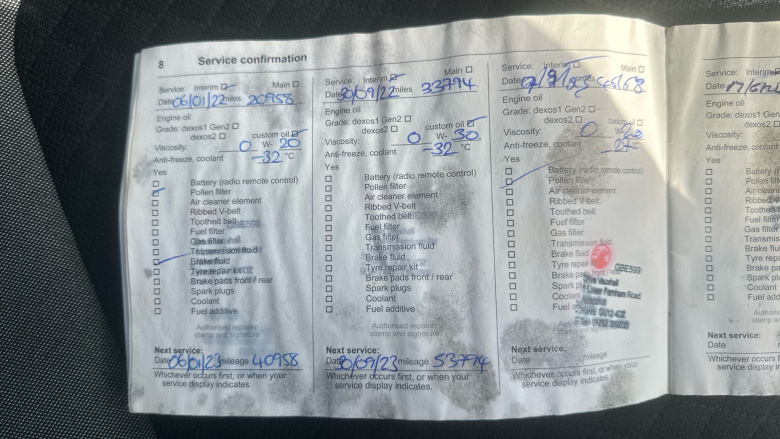 8 Service confirmation
Service: Interim Main
Date 06/01/22 miles 20958
Engine oil
Grade: dexos1 Gen2 custom oil
dexos2
Viscosity: 0 W- 20
Anti-freeze, coolant -32 °C
Yes
Battery (radio remote control)
Pollen filter
Air cleaner element
Ribbed V-belt
Toothed belt
Fuel filter
Gas filter
Transmission fluid
Brake fluid
Tyre repair kit
Brake pads front / rear
Spark plugs
Coolant
Fuel additive
Authorised repairer
stamp and signature
Next service:
Date 06/01/23 mileage 40958
Whichever occurs first, or when your
service display indicates.
Service: Interim Main
Date 30/09/22 miles 33794
Engine oil
Grade: dexos1 Gen2 custom oil
dexos2
Viscosity: 0 W- 30
Anti-freeze, coolant -32 °C
Yes
Battery (radio remote control)
Pollen filter
Air cleaner element
Ribbed V-belt
Toothed belt
Fuel filter
Gas filter
Transmission fluid
Brake fluid
Tyre repair kit
Brake pads front / rear
Spark plugs
Coolant
Fuel additive
Authorised repairer
stamp and signature
Next service:
Date 30/09/23 mileage 53794
Whichever occurs first, or when your
service display indicates.
Service: Interim Main
Date
Engine oil
Grade: dexos1 Gen2 custom oil
dexos2
Viscosity: 0 W-
Anti-freeze, coolant
Yes
Battery (radio remote control)
Pollen filter
Air cleaner element
Ribbed V-belt
Toothed belt
Fuel filter
Gas filter
Transmission fluid
Brake fluid
Tyre repair
Brake pads front / rear
Spark
Coolant
Fuel
GBE599
Vauxhall
Lower Farnham Road
Next service:
Date mileage
Whichever occurs first, or when your
service display indicates.
Service: Interim
Date
Engine oil
Grade: dexos1
dexos2
Viscosity:
Anti-freeze, coolant
Yes
Battery
Pollen filter
Air cleaner
Ribbed
Toothed
Fuel filter
Gas filter
Transmission
Brake
Tyre
Brake
Spark
Coolant
Fuel
Next service:
Date
Whichever occurs
service display